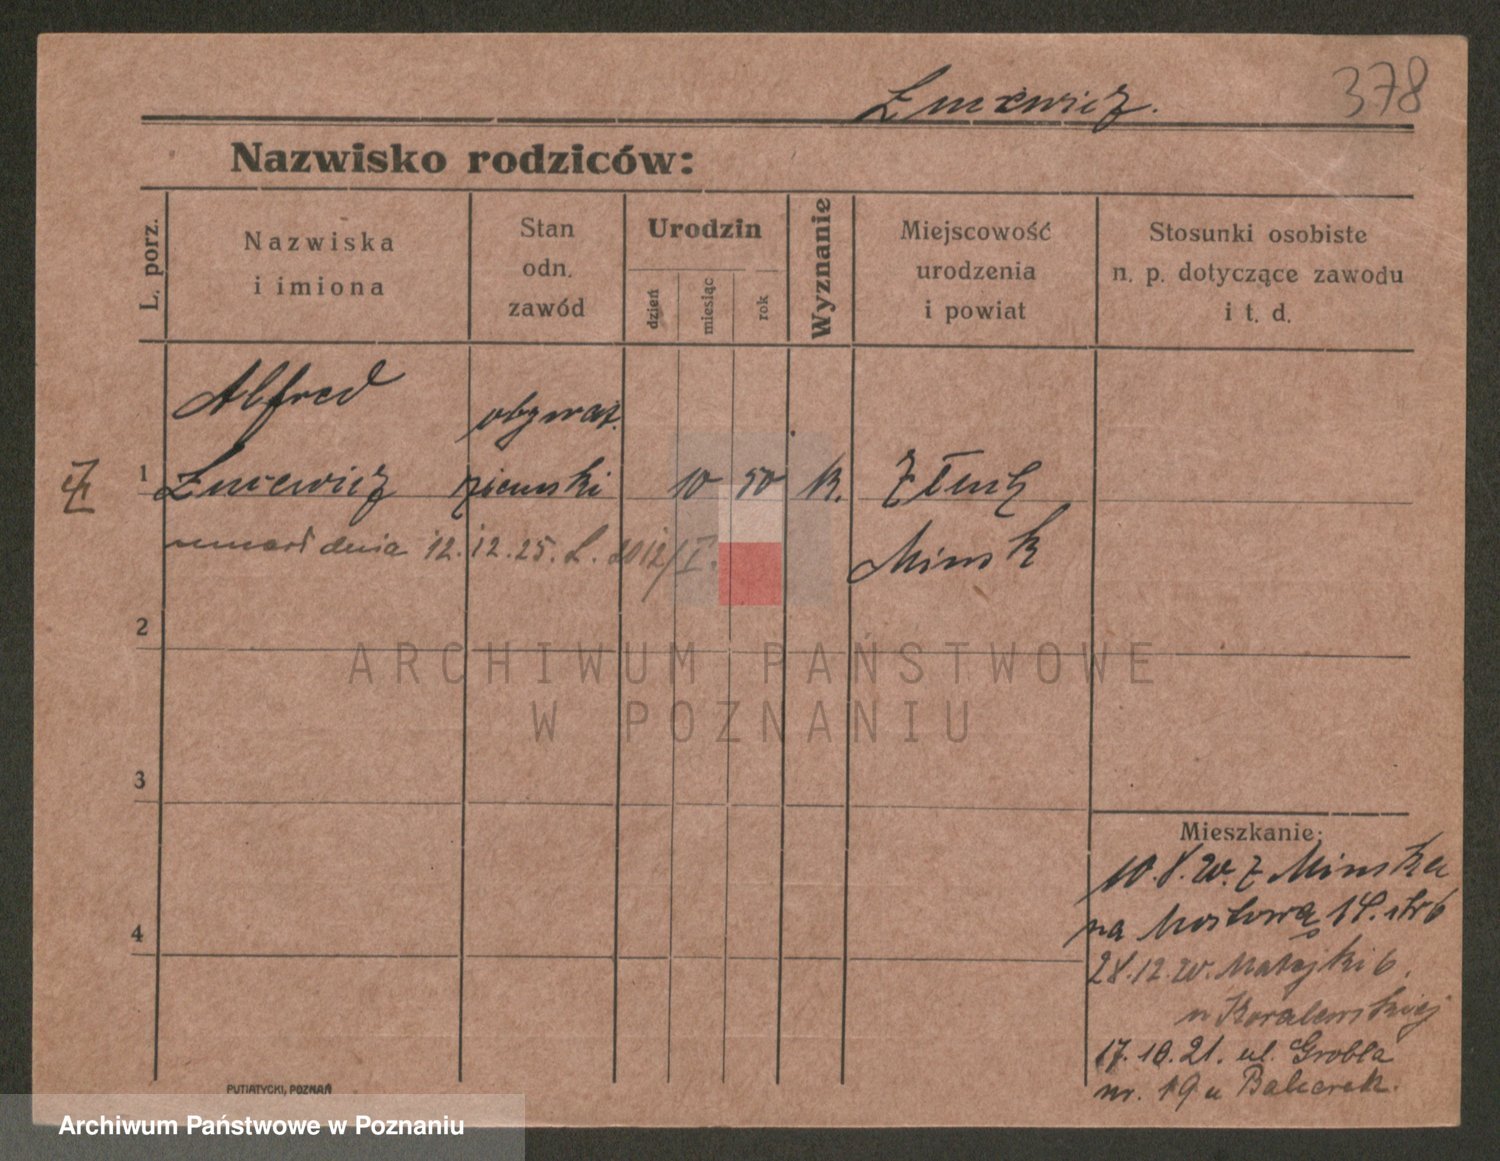 378
Żucewicz.
Nazwisko rodziców:
L. porz.
Nazwiska
i imiona
Stan
odn.
zawód
Urodzin
dzień
miesiąc
rok
Wyznanie
Miejscowość
urodzenia
i powiat
Stosunki osobiste
n. p. dotyczące zawodu
i t. d.
Alfred
obywat.
1
ziemski
10
50
k.
Mińsk
umarł dnia 12.12.25. L. 2012/I.
2
ARCHIWUM PAŃSTWOWE
W POZNANIU
3
Mieszkanie:
10.8.20. z Mińska
na Mostową
4
28.12.20. Matejki 6.
u Koralewskiej
17.10.21. ul. Grobla
nr. 19 u
PUTIATYCKI, POZNAŃ
Archiwum Państwowe w Poznaniu